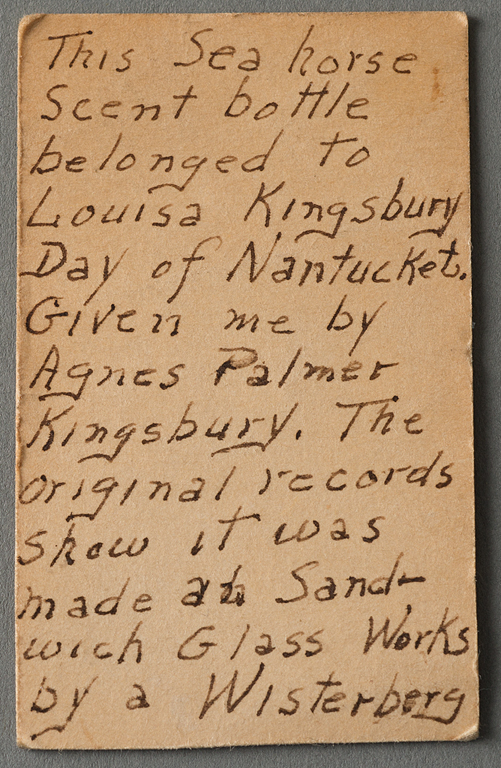 This Sea horse
Scent bottle
belonged to
Louisa Kingsbury
Day of Nantucket.
Given me by
Agnes Palmer
Kingsbury. The
original records
show it was
made at Sand-
wich Glass Works
by a Wisterberg